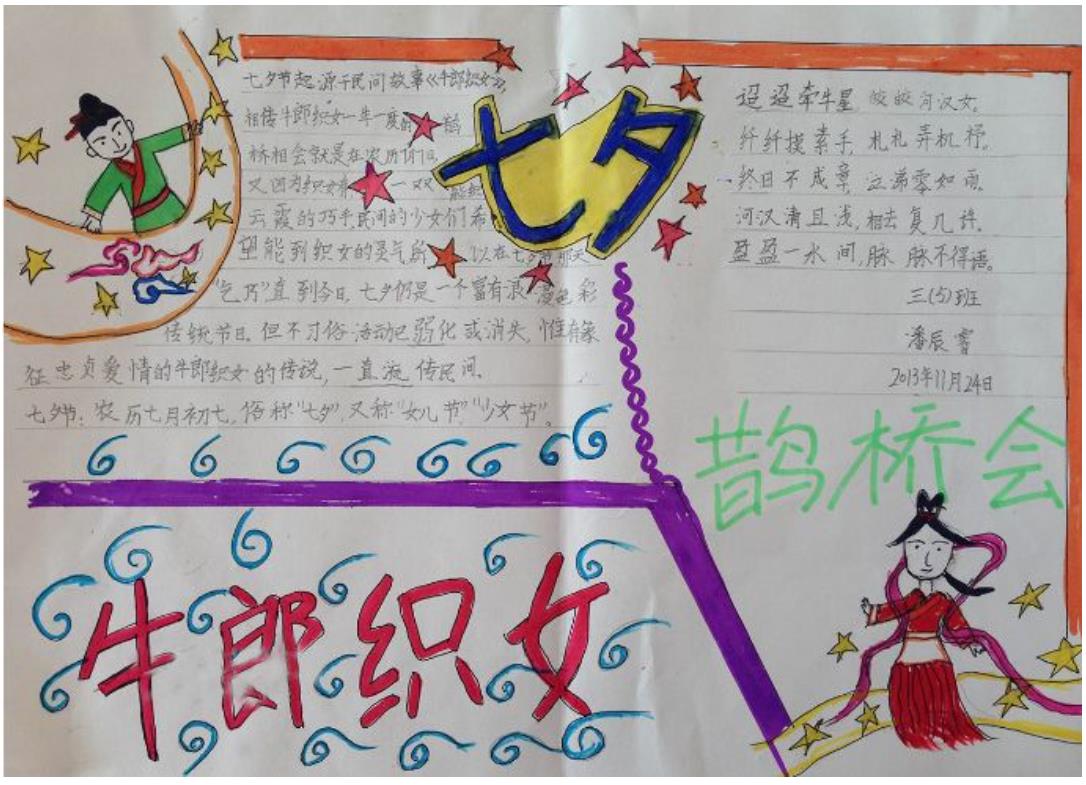 七夕
七夕节起源于民间故事《牛郎织女》,
相传牛郎织女一年一度的 鹊
桥相会就是在农历7月7日
又因为织女 一双 能织
云霞的巧手民间的少女们希
望能到织女的灵气所 以在七夕节那天
"乞巧"直到今日,七夕仍是一个富有浪漫色彩
传统节日,但不习俗活动已弱化或消失,惟有象
征忠贞爱情的牛郎织女的传说,一直流传民间.
七夕节:农历七月初七,俗称"七夕",又称"女儿节""少女节"。
迢迢牵牛星 皎皎河汉女。
纤纤擢素手,札札弄机杼。
终日不成章,泣涕零如雨。
河汉清且浅,相去复几许。
盈盈一水间,脉脉不得语。
三(5)班
潘辰睿
2013年11月24日
鹊桥会
牛郎织女